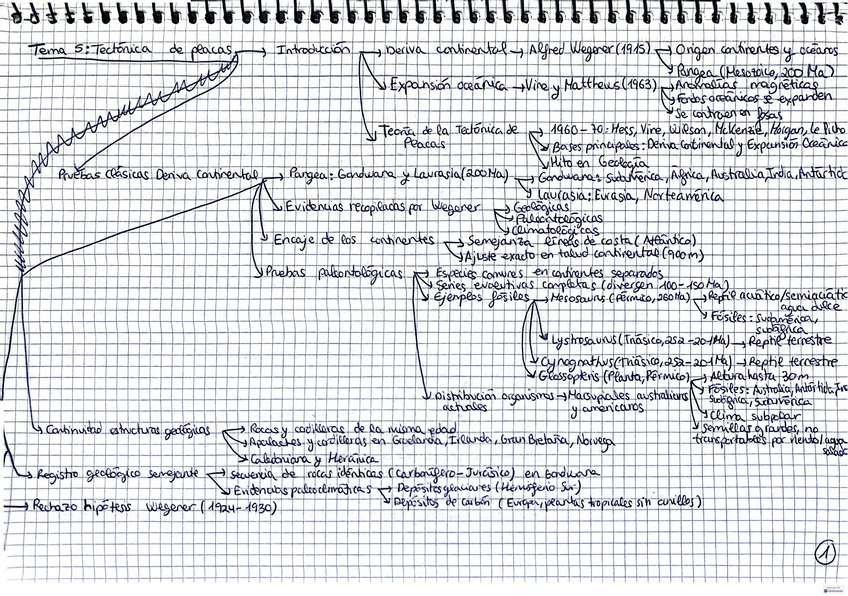 Tema 5: Tectónica de placas → Introducción → Deriva continental → Alfred Wegener (1915) → Origen continentes y océanos
Pangea (Mesozoico, 200 Ma)
Expansión oceánica → Vine y Matthews (1963) → Anomalías magnéticas
Fondos oceánicos se expanden
Se contraen en fosas
Teoría de la Tectónica de Placas → 1960-70: Hess, Vine, Wilson, McKenzie, Morgan, Le Picho
Bases principales: Deriva continental y Expansión Oceánica
Hito en Geología
Pruebas Clásicas Deriva Continental → Pangea: Gondwana y Laurasia (200 Ma) → Gondwana: Sudamérica, África, Australia, India, Antártid
Laurasia: Eurasia, Norteamérica
Evidencias recopiladas por Wegener → Geológicas
Paleontológicas
Climatológicas
Encaje de los continentes → Semejanza líneas de costa (Atlántico)
Ajuste exacto en talud continental (900m)
Pruebas paleontológicas → Especies comunes en continentes separados
Series evolutivas completas (divergen 100-150 Ma)
Ejemplos fósiles → Mesosaurus (Pérmico, 260 Ma) → Reptil acuático/semiacuátic agua dulce
Fósiles: Sudamérica, sudáfrica
Lystrosaurus (Triásico, 252-201 Ma) → Reptil terrestre
Cynognathus (Triásico, 252-201 Ma) → Reptil terrestre
Glossopteris (Planta, Pérmico) → Altura hasta 30m
Fósiles: Australia, Antártida, Sudáfrica, Sudamérica
Clima subpolar
Semillas grandes, no transportables por viento/agua salad
Distribución organismos actuales → Marsupiales australianos y americanos
Continuidad estructuras geológicas → Rocas y cordilleras de la misma edad
Apalaches y cordilleras en Groelandia, Irlanda, Gran Bretaña, Noruega
Caledoniana y Hercínica
Registro geológico semejante → Secuencia de rocas idénticas (Carbonífero-Jurásico) en Gondwana
Evidencias paleoclimáticas → Depósitos glaciares (Hemisferio Sur)
Depósitos de carbón (Europa, plantas tropicales sin anillos)
→ Rechazo hipótesis Wegener (1924-1930)
1